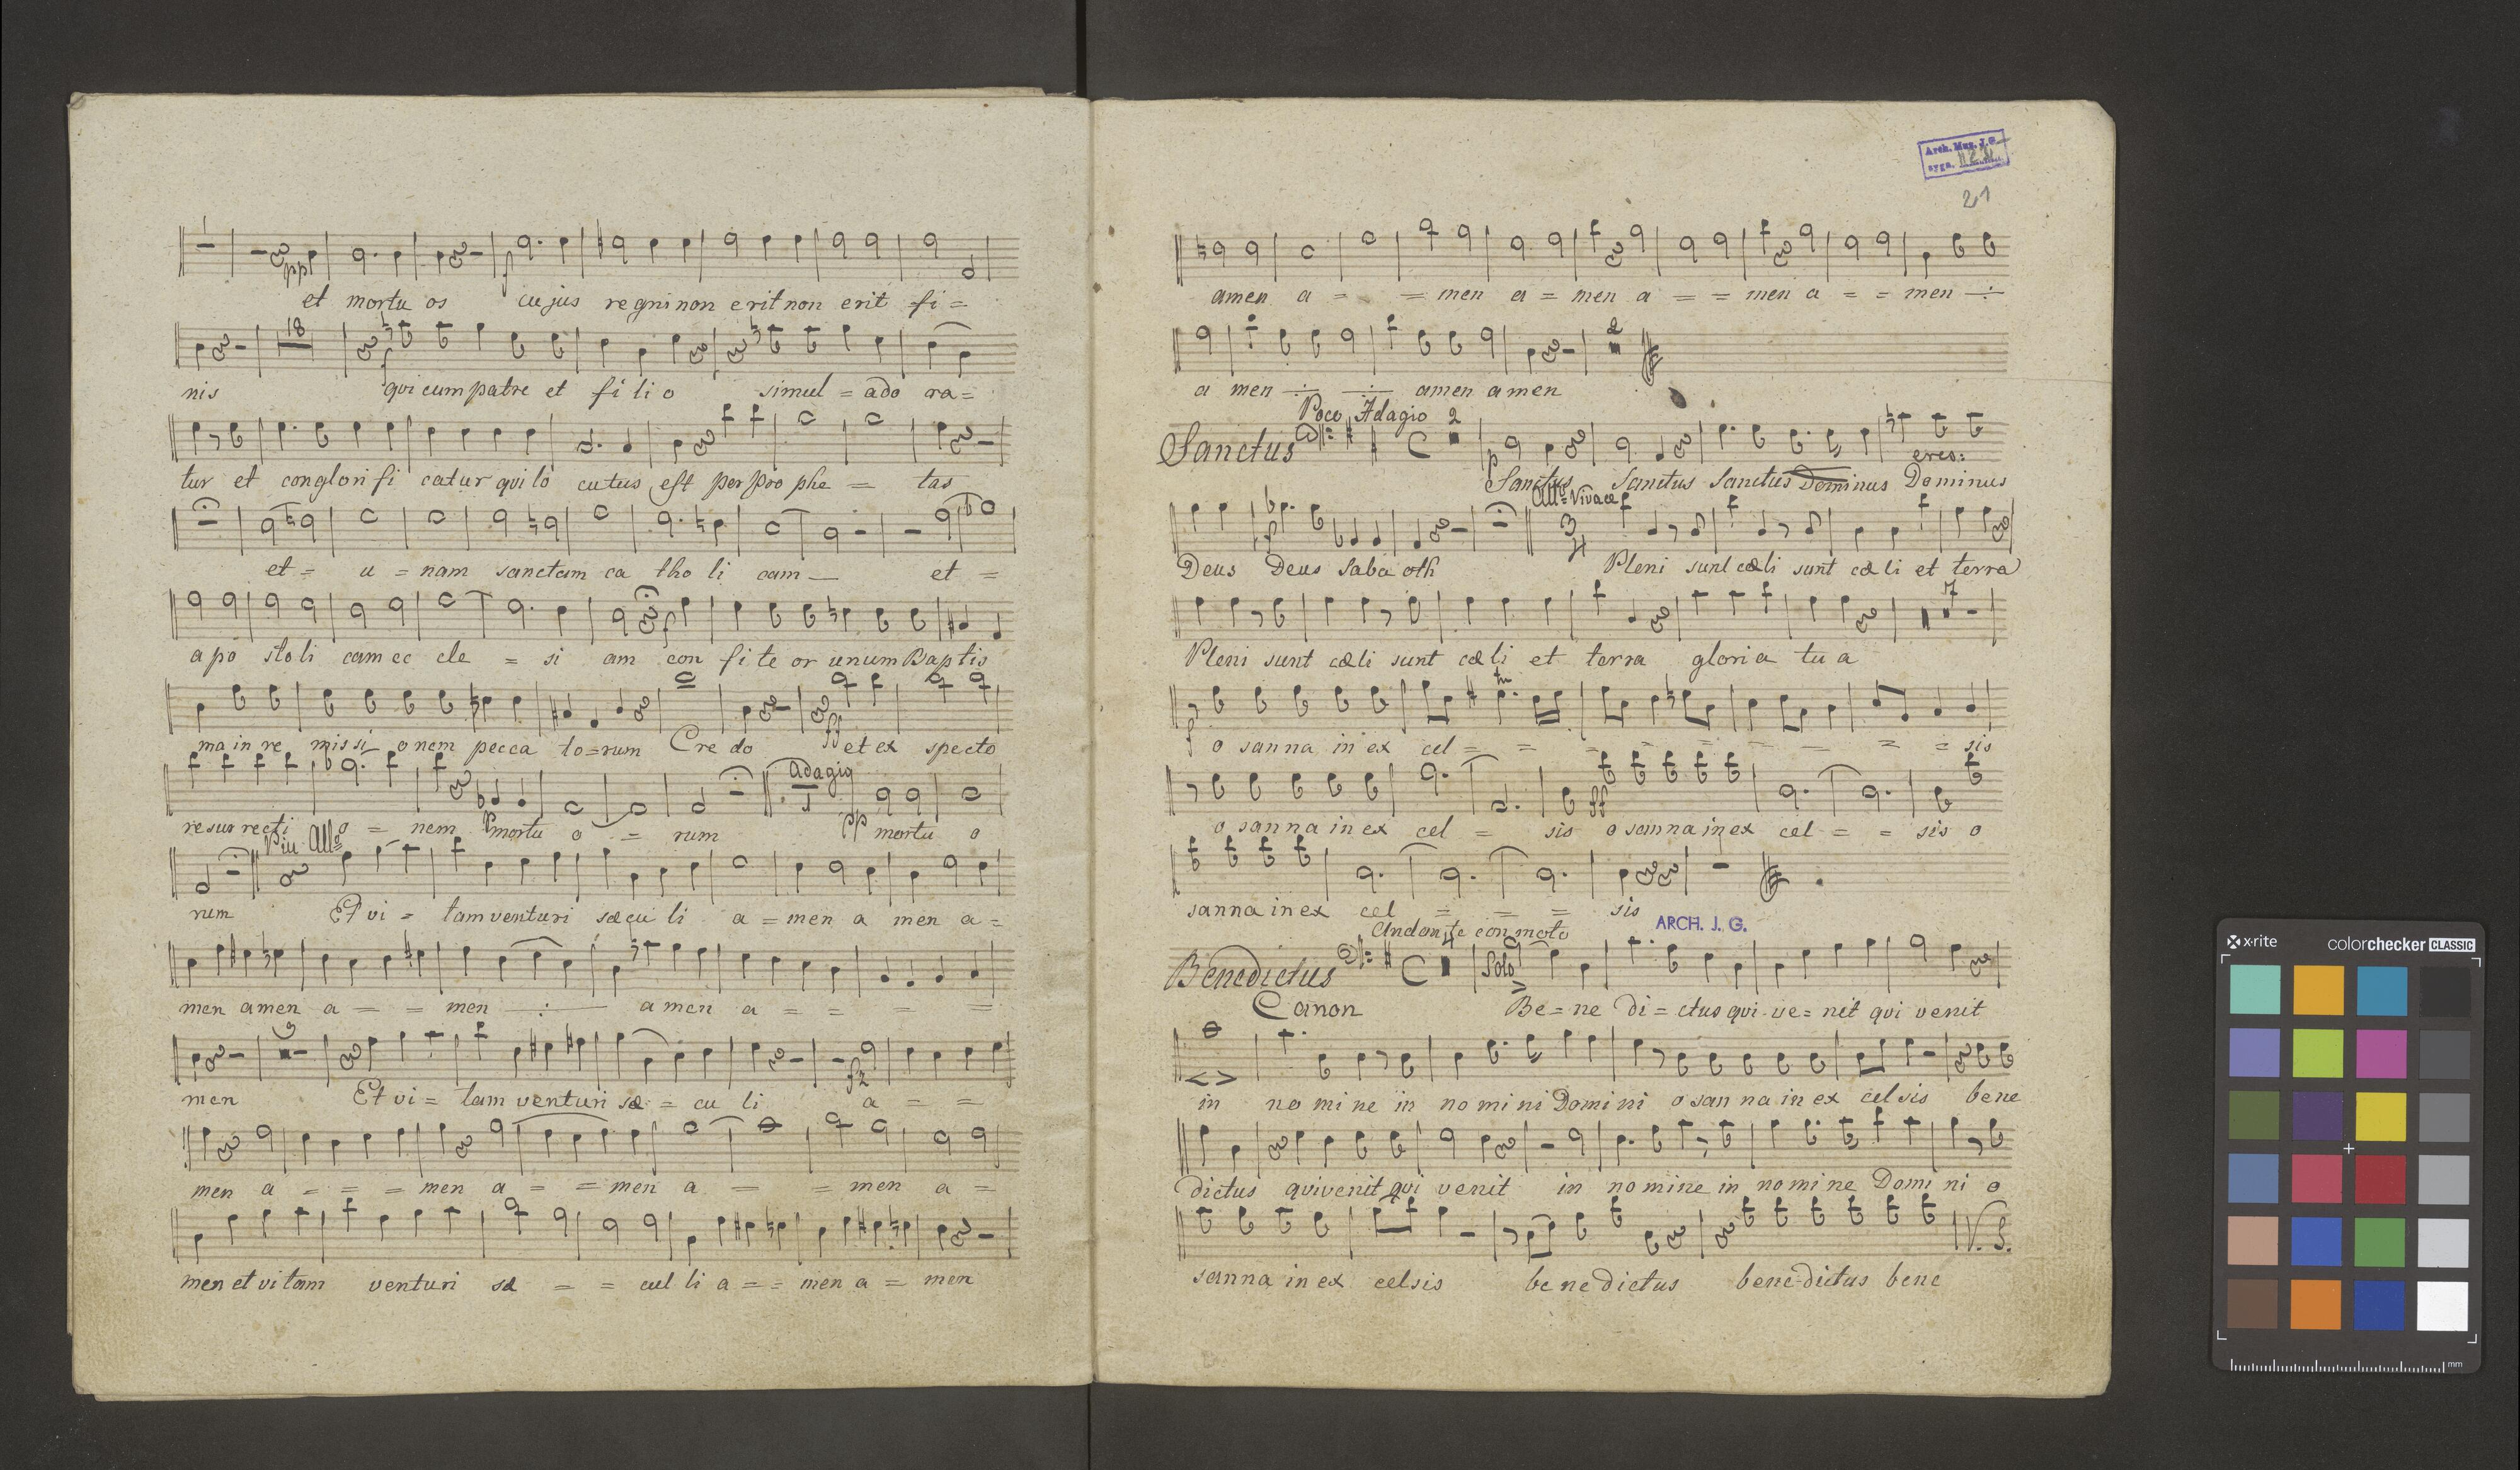 pp f
et mortu os cujus regni non erit non erit fi =
18
f
nis qui cum patre et fi li o simul = ado ra =
tur et conglori fi catur qui lo cutus est per pro phe = tas
et = u = nam sanctam ca tho li cam — et =
f
a po sto li cam ec cle = si am con fi te or unum Baptis
ff
ma in re missi onem pecca to = rum Cre do et ex specto
adagio
p pp
resurrecti o = nem mortu o = rum mortu o
Piu Allo
rum Et vi = tam venturi sæcu li a = men a men a =
men amen a = = men ÷ amen a = = = =
fz
men Et vi = tam venturi sæ = cu li a = =
men a = = = men a = = men a = = men a =
men et vi tam venturi sæ = = cul li a = = men a = men
Arch. Muz. J. G.
sygn.
21
amen a = = men a = men a = = men a = = men ÷
2
a men ÷ ÷ amen amen
Poco Adagio 2
Sanctus C
p cres:
Sanctus Sanctus Sanctus Dominus Dominus
Allo Vivace
f 3 4
Deus Deus Saba oth Pleni sunt cœli sunt cœ li et terra
7
Pleni sunt cœli sunt cœli et terra gloria tu a
tr
f
o sanna in ex cel = = = = = = = = sis
ff
o sanna in ex cel = sis o sanna in ex cel = = sis o
sanna in ex cel = = = sis
ARCH. J. G.
Andante con moto
4
Benedictus C Solo
Canon Be = ne di = ctus qui ve = nit qui venit
< >
in no mi ne in no mi ni Domi ni o san na in ex celsis bene
dictus qui venit qui venit in no mine in no mi ne Domi ni o
V. S.
sanna in ex celsis be ne dictus bene-dictus bene
x-rite
colorchecker CLASSIC
mm